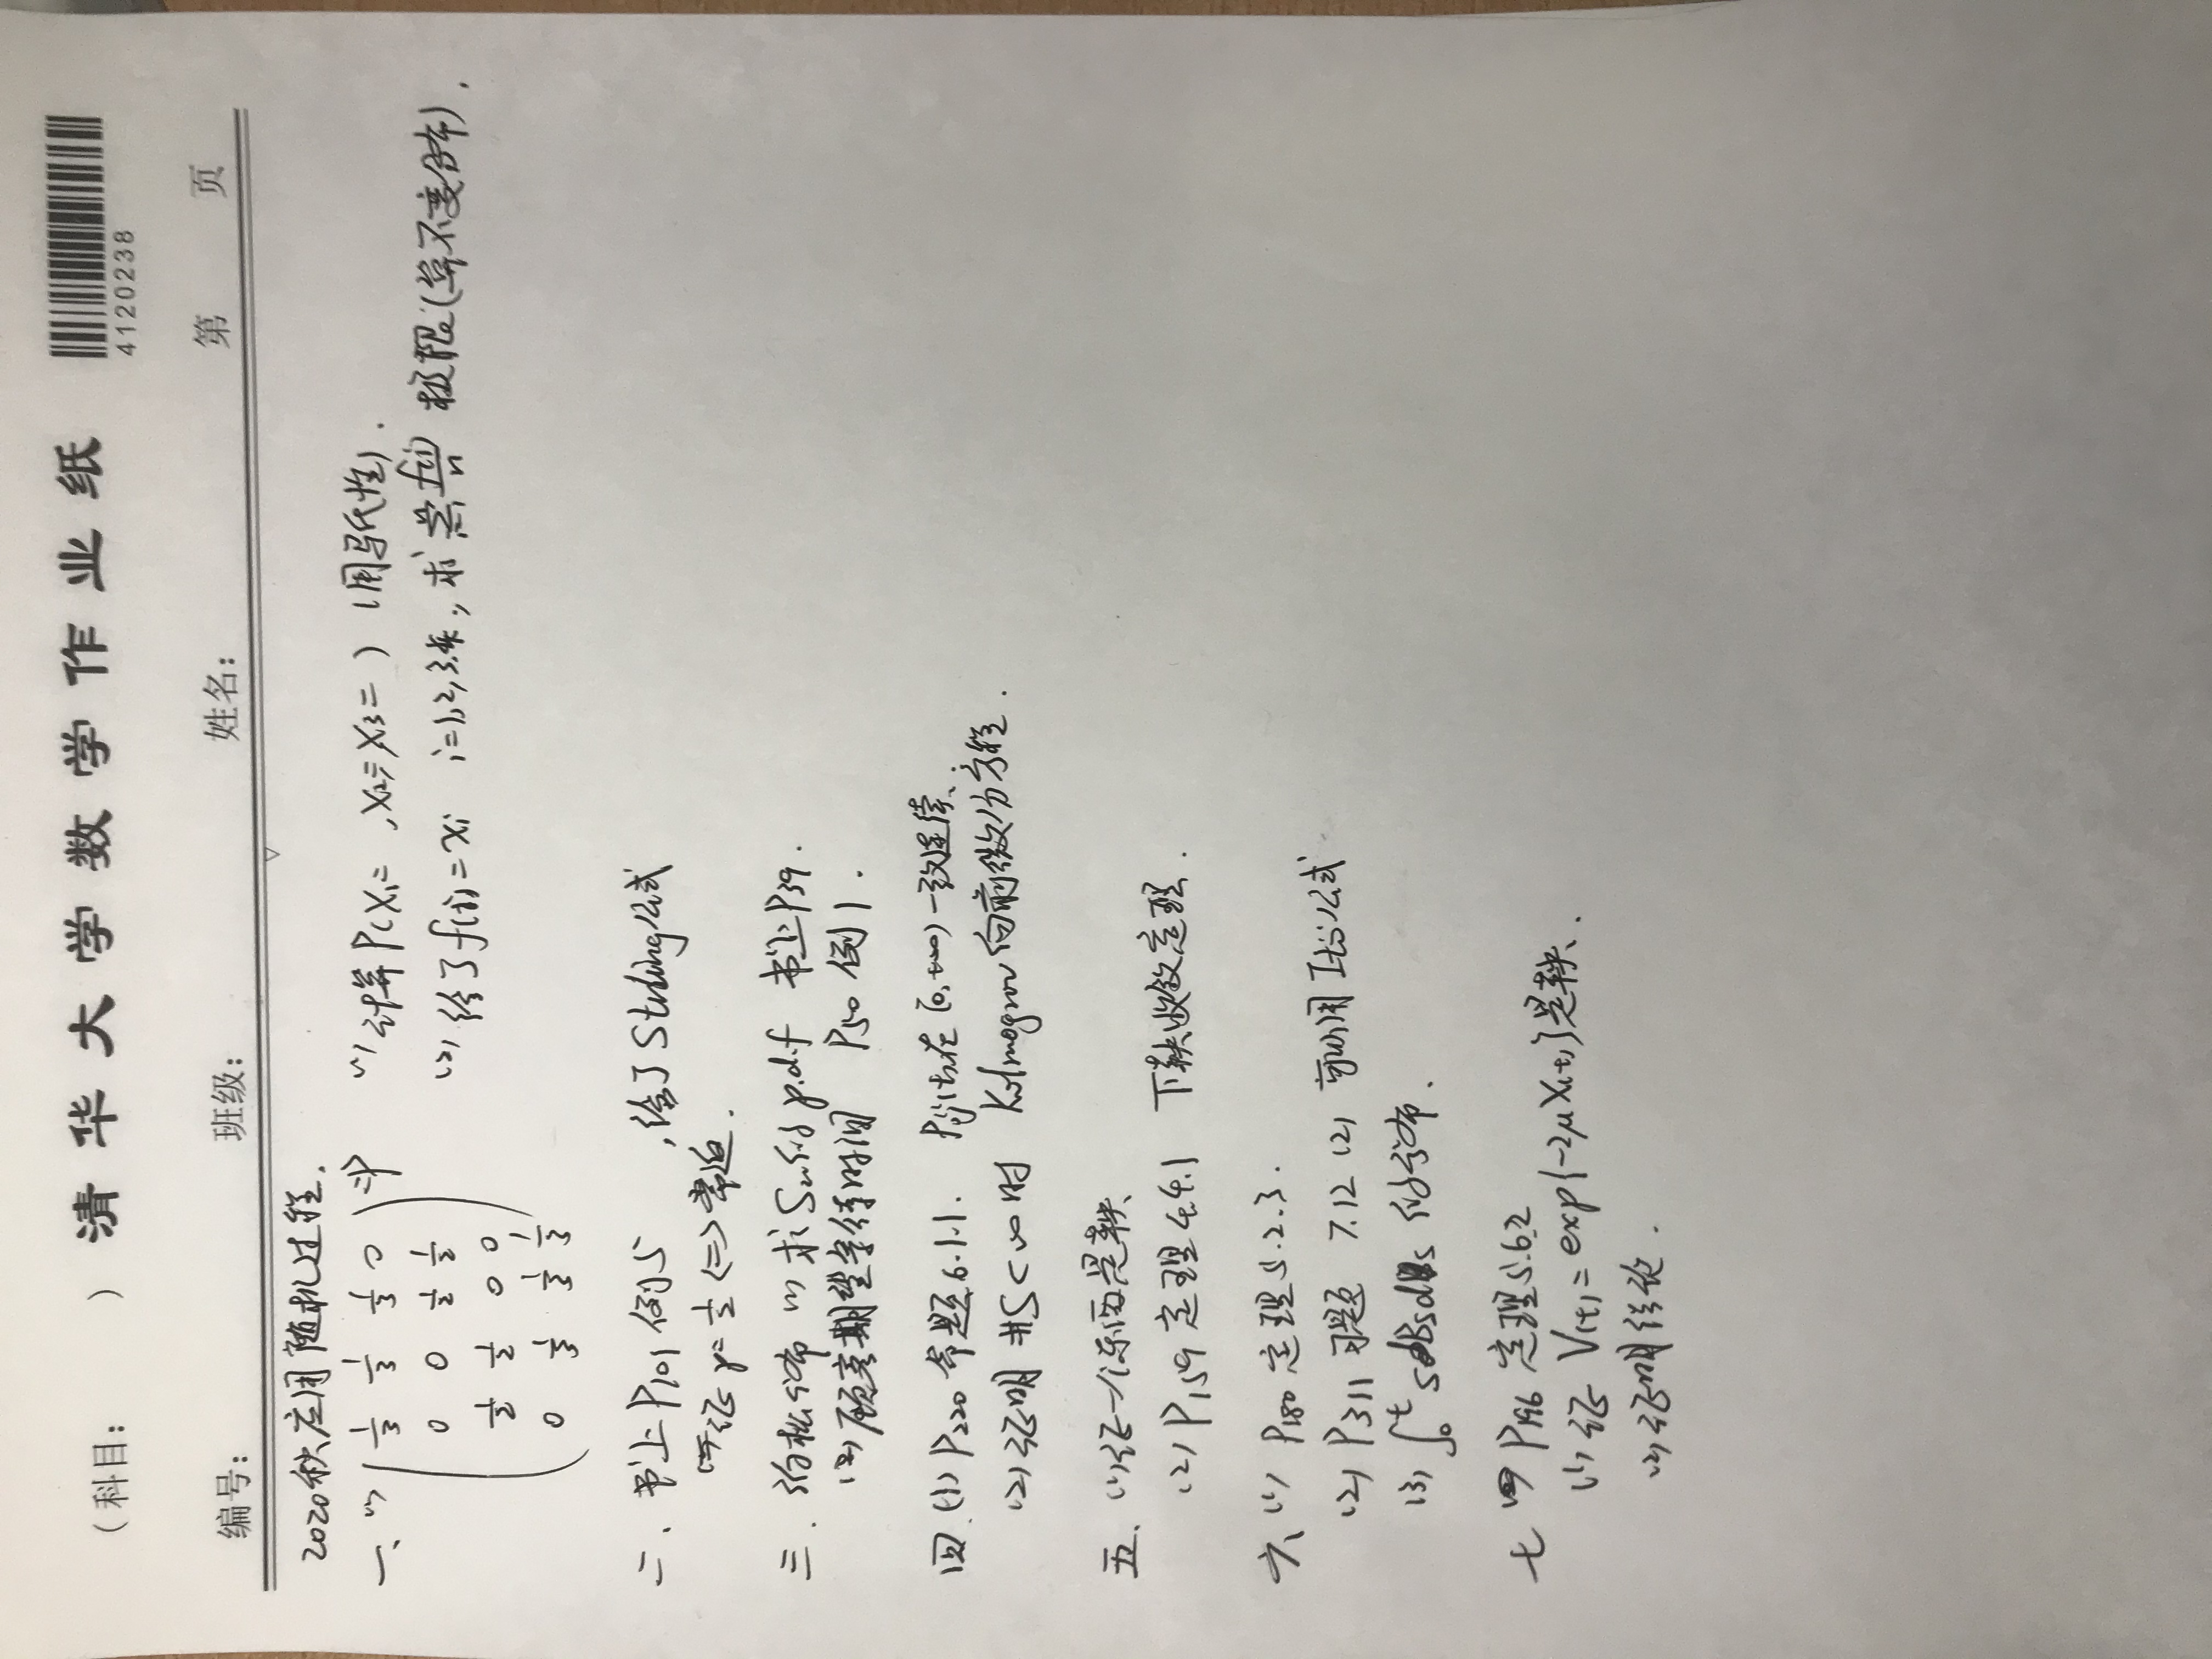 (科目: ) 清华大学数学作业纸
4120238
编号: 班级: 姓名: 第 页
2020秋应用随机过程.
一、(1) ( 1/3 1/3 1/3 0 ) =P (1) 计算P(X₁= ,X₂= ,X₃= ) (用马氏性).
0 0 1/2 1/2 (2) 给了f(i)=xᵢ i=1,2,3,4, 求 Σ f(i)/n 极限(算不变分布).
1/2 1/2 0 0
0 1/3 1/3 1/3
二、书上P101 例5 ,给了Stirling公式
证 p=1/2 <=> 常返.
三. 泊松分布 (1) 求Sn的p.d.f 书上P39.
(2) 顾客期望等待时间 P50 例1.
四.(1) P220 命题6.1.1. Pij(t)在[0,+∞)一致连续.
(2) 证明 #S<∞时 Kolmogrov向前微分方程.
五、(1) 证一个东西是鞅
(2) P159 定理4.4.1 下鞅收敛定理.
六、(1) P180 定理5.2.3.
(2) P311 习题 7.12 (2) 可以用Itô公式
(3) ∫₀ᵗ sBsds 的分布.
七 P196 定理5.6.2
(1) 证 V(t)=exp{-2μX(t)}是鞅.
(2) 证明结论.